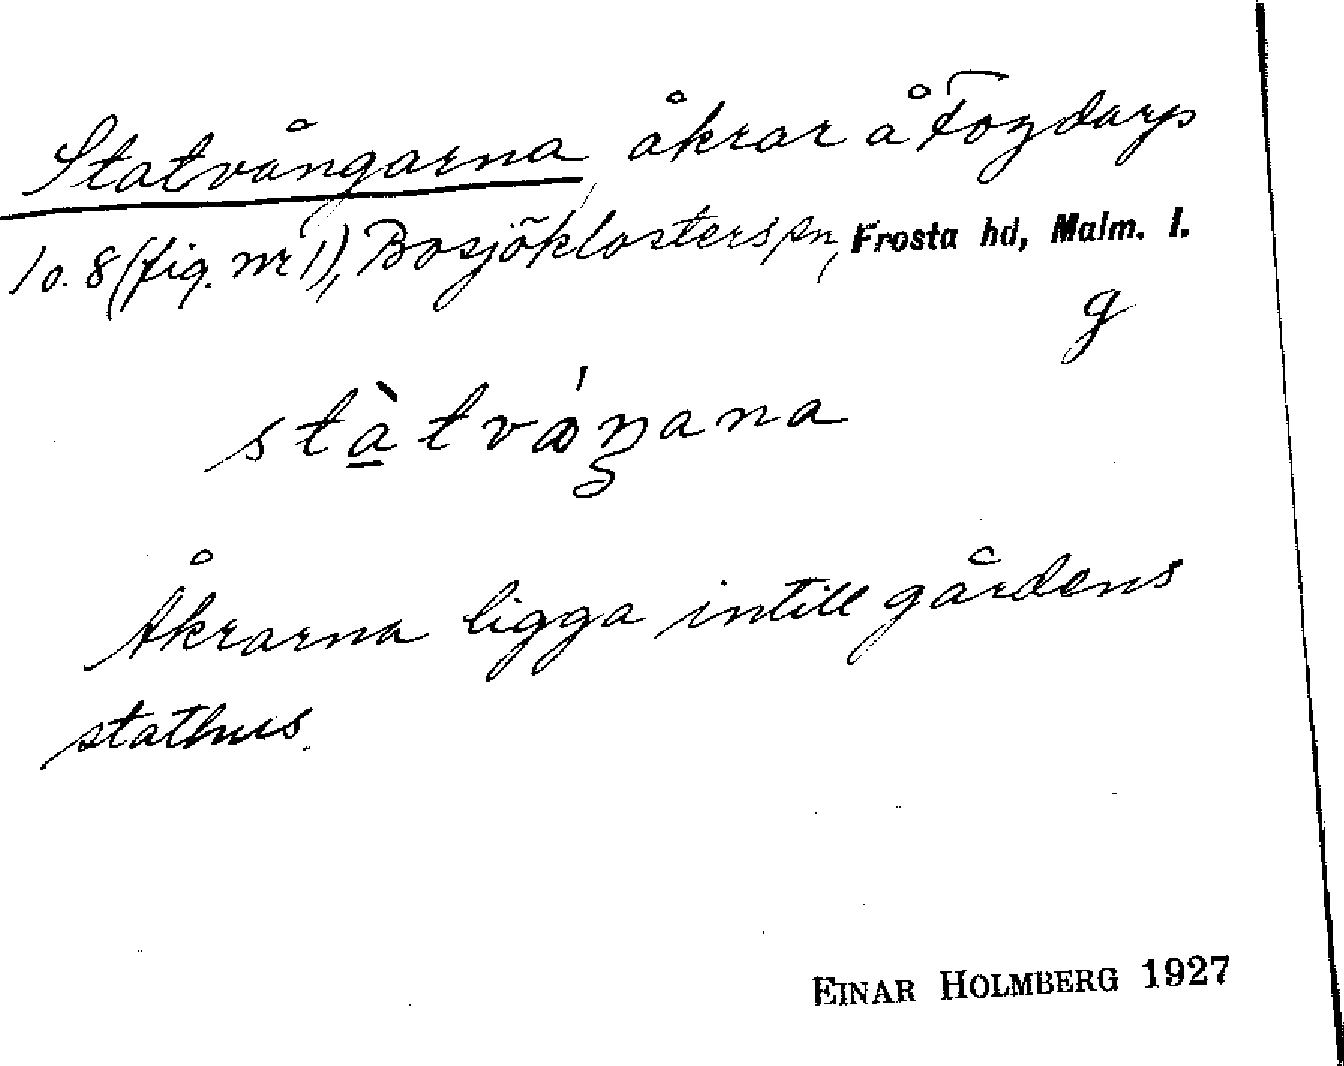 Statvångarna, åkrar å Fogdarp
1 o. 8 (fig. nr 1), Bosjöklosters sn, Frosta hd, Malm. l.
g
Åkrarna ligga intill gårdens
stathus.
EINAR HOLMBERG 1927